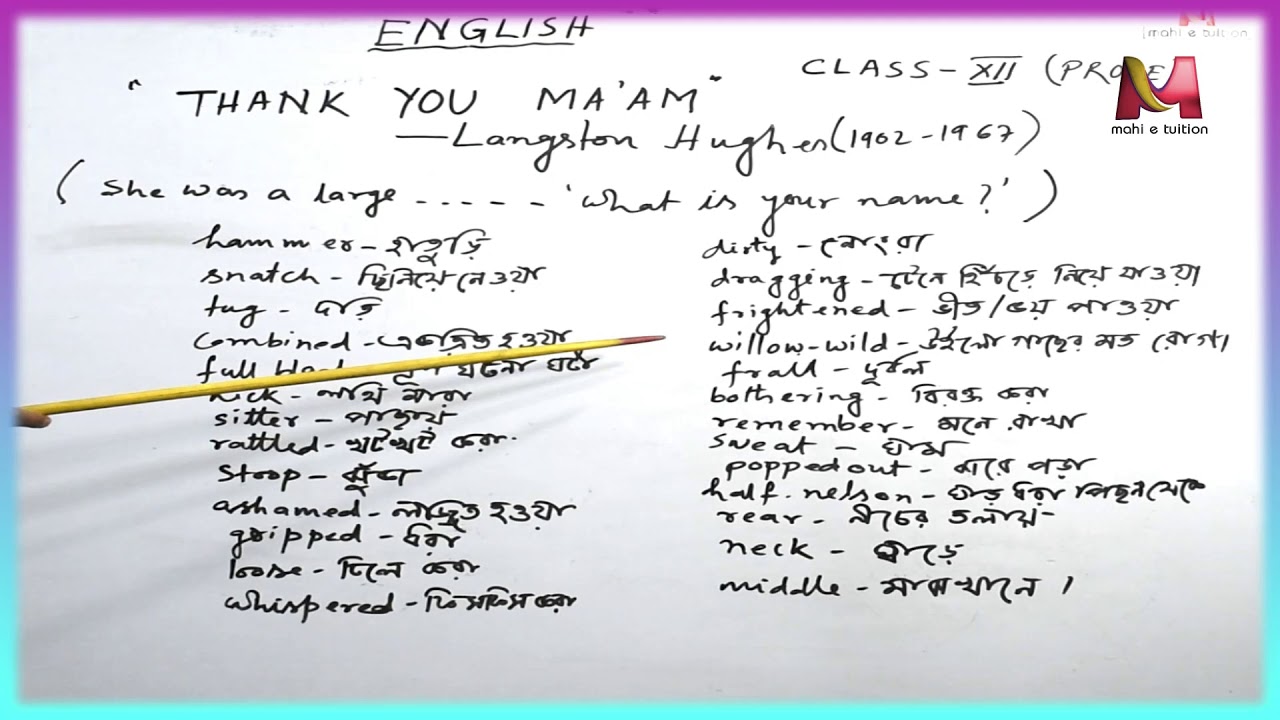 ENGLISH
mahi e tuition
CLASS - XII (PRO E
M
mahi e tuition
"THANK YOU MA'AM"
—Langston Hughes (1902-1967)
(She was a large ----- 'What is your name?')
hammer - হাতুড়ি
snatch - ছিনিয়ে নেওয়া
tug - দড়ি
combined - একত্রিত হওয়া
full ঘটনা ঘটে
kick - লাথি মারা
sitter - পাছায়
rattled - খটখট করা
stoop - ঝুঁকা
ashamed - লজ্জিত হওয়া
gripped - ধরা
loose - ঢিলে করা
whispered - ফিসফিস করা
dirty - নোংরা
dragging - টেনে হিঁচড়ে নিয়ে যাওয়া
frightened - ভীত / ভয় পাওয়া
willow-wild - উইলো গাছের মত রোগা
frail - দুর্বল
bothering - বিরক্ত করা
remember - মনে রাখা
sweat - ঘাম
popped out - ঝরে পড়া
half-nelson - ঘাড় ধরা পিছন থেকে
rear - নীচের তলায়
neck - ঘাড়ে
middle - মাঝখানে।